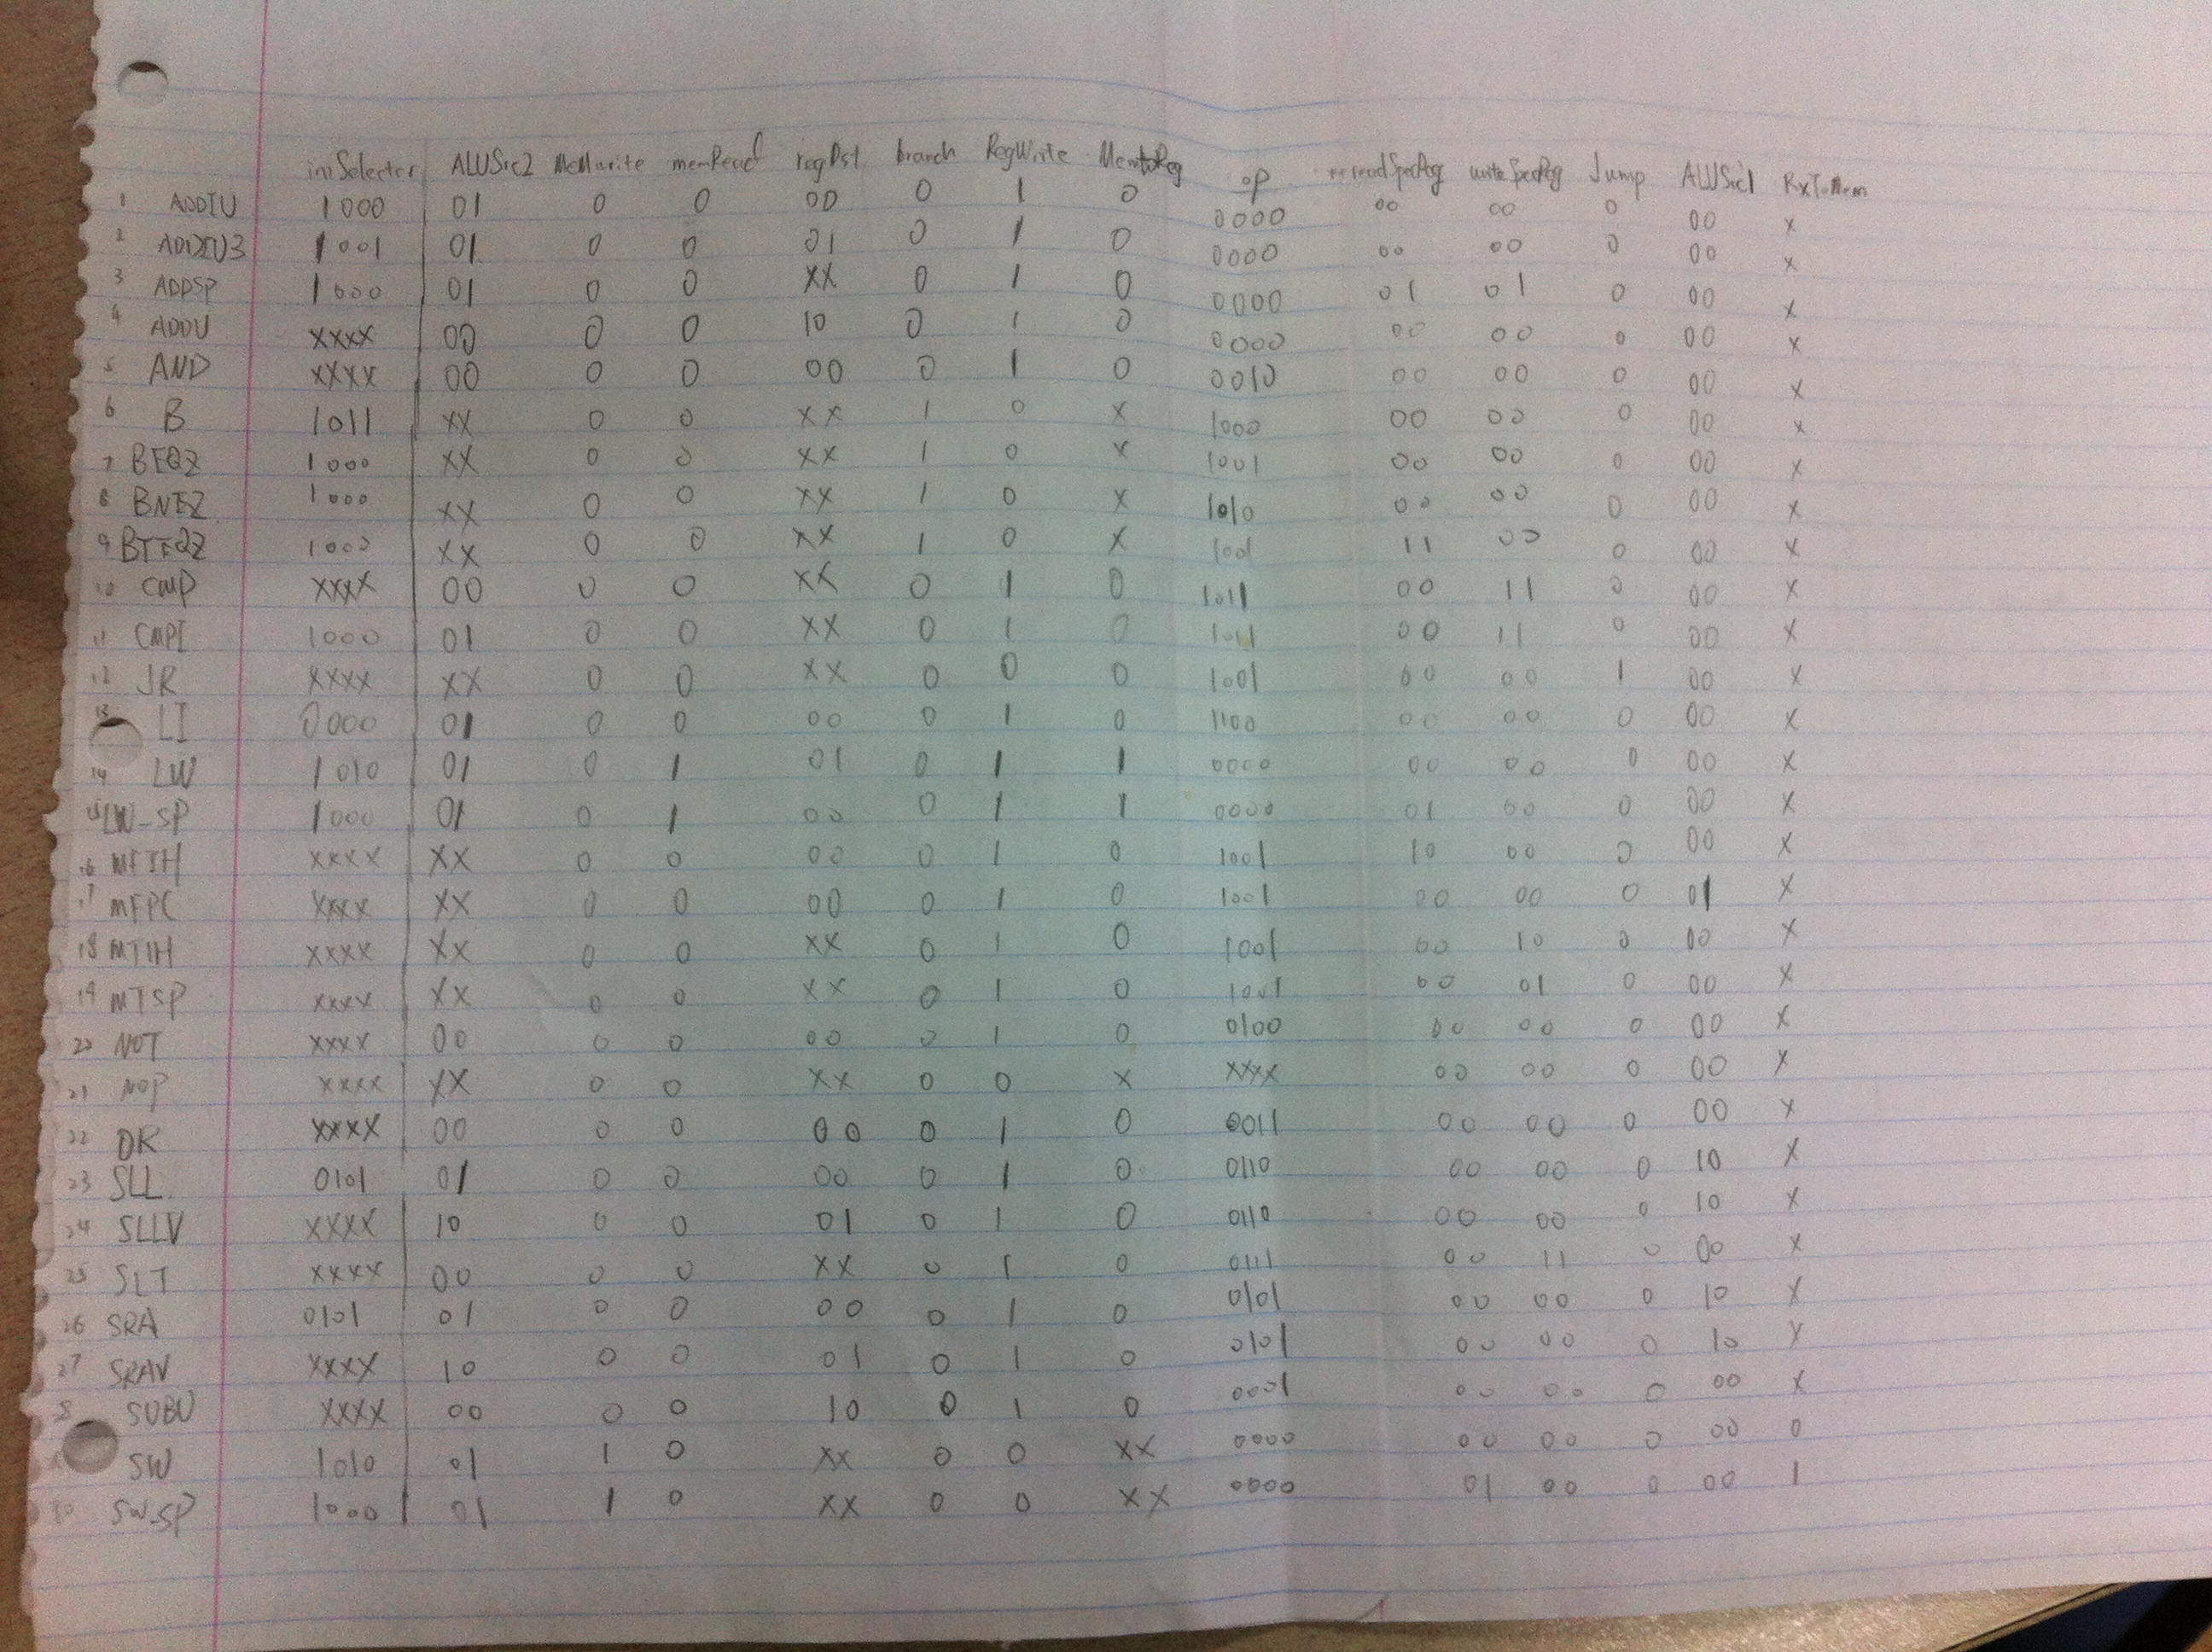 imSelector ALUSrc2 MemWrite memRead regDst branch RegWrite MemtoReg op readSpecReg writeSpecReg Jump ALUSrc1 RxToMem
1 ADDIU 1000 01 0 0 00 0 1 0 0000 00 00 0 00 X
2 ADDIU3 1001 01 0 0 01 0 1 0 0000 00 00 0 00 X
3 ADDSP 1000 01 0 0 XX 0 1 0 0000 01 01 0 00 X
4 ADDU XXXX 00 0 0 10 0 1 0 0000 00 00 0 00 X
5 AND XXXX 00 0 0 00 0 1 0 0010 00 00 0 00 X
6 B 1011 XX 0 0 XX 1 0 X 1000 00 00 0 00 X
7 BEQZ 1000 XX 0 0 XX 1 0 X 1001 00 00 0 00 X
8 BNEZ 1000 XX 0 0 XX 1 0 X 1010 00 00 0 00 X
9 BTEQZ 1000 XX 0 0 XX 1 0 X 1001 11 00 0 00 X
10 CMP XXXX 00 0 0 XX 0 1 0 1011 00 11 0 00 X
11 CMPI 1000 01 0 0 XX 0 1 0 00 11 0 00 X
12 JR XXXX XX 0 0 XX 0 0 0 1101 00 00 1 00 X
13 LI 0000 01 0 0 00 0 1 0 1100 00 00 0 00 X
14 LW 1010 01 0 1 01 0 1 1 0000 00 00 0 00 X
15 LW-SP 1000 01 0 1 00 0 1 1 0000 01 00 0 00 X
16 MFIH XXXX XX 0 0 00 0 1 0 1001 10 00 0 00 X
17 MFPC XXXX XX 0 0 00 0 1 0 1001 00 00 0 01 X
18 MTIH XXXX XX 0 0 XX 0 1 0 1001 00 10 0 00 X
19 MTSP XXXX XX 0 0 XX 0 1 0 1001 00 01 0 00 X
20 NOT XXXX 00 0 0 00 0 1 0 0100 00 00 0 00 X
21 NOP XXXX XX 0 0 XX 0 0 X XXXX 00 00 0 00 X
22 OR XXXX 00 0 0 00 0 1 0 0011 00 00 0 00 X
23 SLL 0101 01 0 0 00 0 1 0 0110 00 00 0 10 X
24 SLLV XXXX 10 0 0 01 0 1 0 0110 00 00 0 10 X
25 SLT XXXX 00 0 0 XX 0 1 0 0111 00 11 0 00 X
26 SRA 0101 01 0 0 00 0 1 0 0101 00 00 0 10 X
27 SRAV XXXX 10 0 0 01 0 1 0 0101 00 00 0 10 X
28 SUBU XXXX 00 0 0 10 0 1 0 0001 00 00 0 00 X
SW 1010 01 1 0 XX 0 0 XX 0000 00 00 0 00 0
SW-SP 1000 01 1 0 XX 0 0 XX 0000 01 00 0 00 1